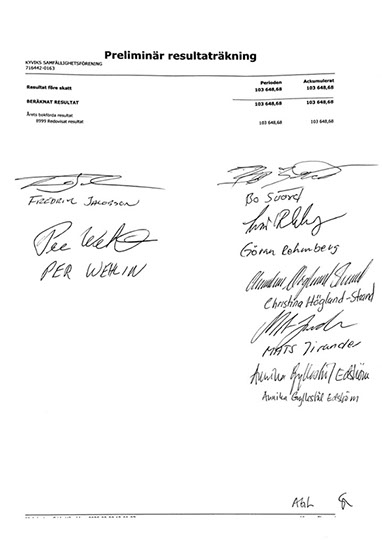 Preliminär resultaträkning
KYVIKS SAMFÄLLIGHETSFÖRENING
716442-0163
Perioden Ackumulerat
Resultat före skatt 103 648,68 103 648,68
BERÄKNAT RESULTAT 103 648,68 103 648,68
Årets bokförda resultat
8999 Redovisat resultat 103 648,68 103 648,68
FREDRIK JACOBSON
Bo Svärd
Per
PER WEHLIN
Göran Rehnberg
Christina Höglund-Strand
MATS Tirander
Annika Gyllestål Edström
Annika Gyllestål Edström